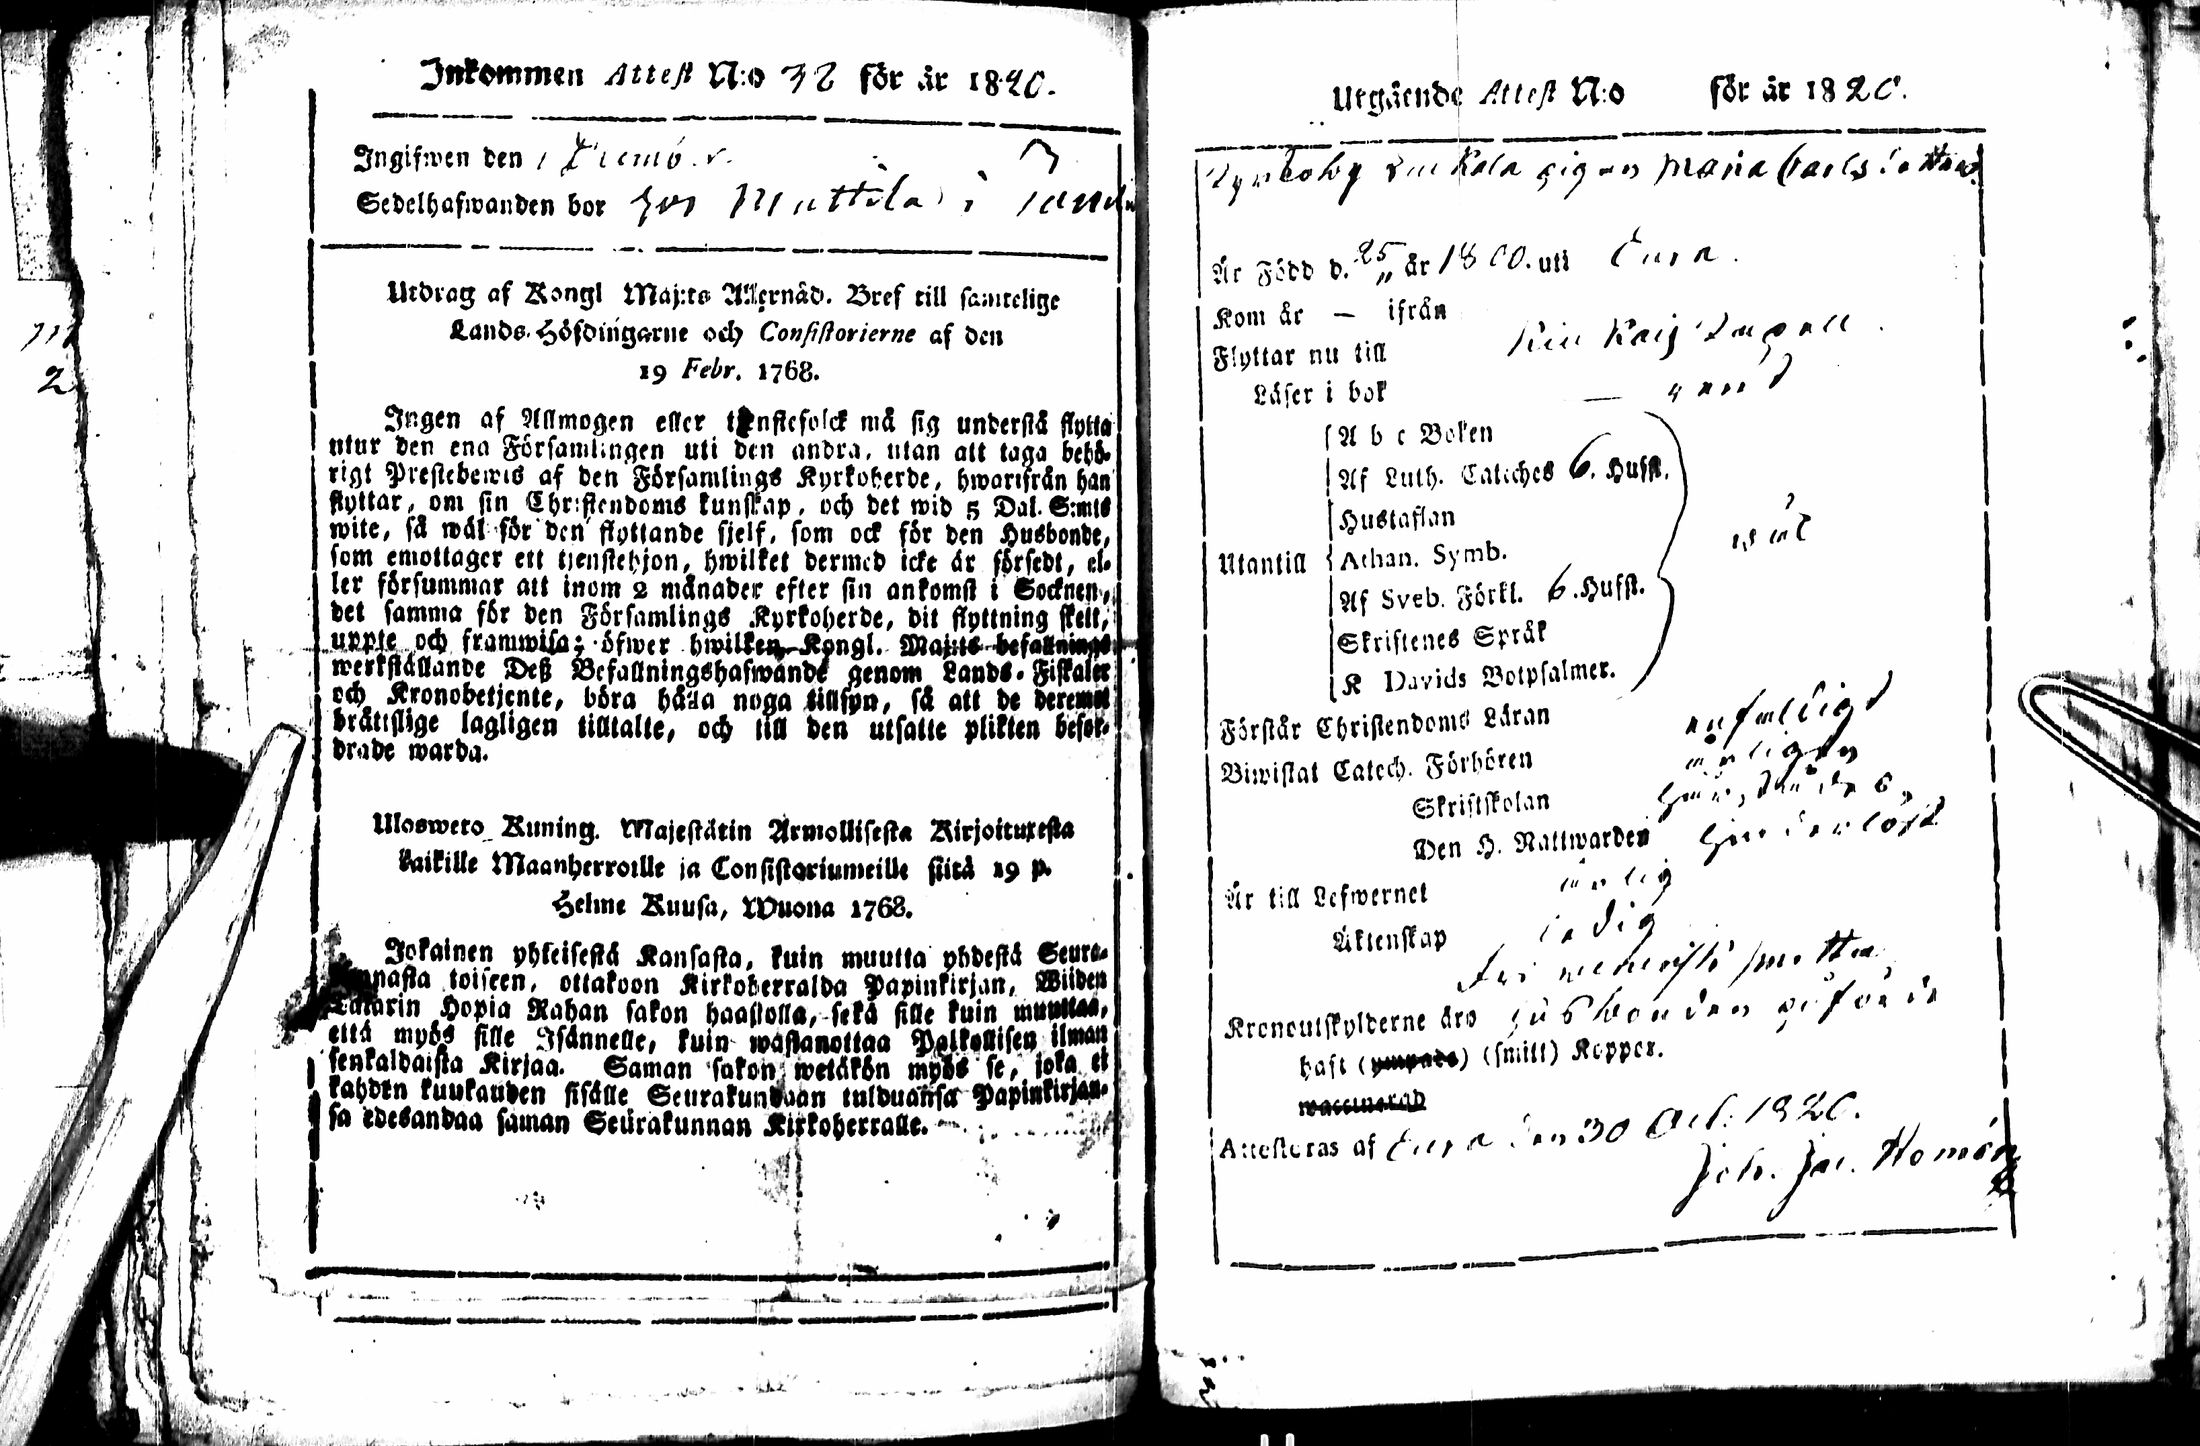 Inkommen Attest N:o 32 för år 1820.
Ingifwen den
Sedelhafwanden bor hos Mattila i
Utdrag af Kongl Maj:ts Allernåd. Bref till samtelige
Lands-Höfdingarne och Consistorierne af den
19 Febr. 1768.
Ingen af Allmogen eller tjenstefolck må sig understå flytta
utur den ena Församlingen uti den andra, utan att taga behö-
rigt Prestebewis af den Församlings Kyrkoherde, hwarifrån han
flyttar, om sin Christendoms kunskap, och det wid 5 Dal. S:mts
wite, så wäl för den flyttande sjelf, som ock för den Husbonde,
som emottager ett tjenstehjon, hwilket dermed icke är försedt, el-
ler försummar att inom 2 månader efter sin ankomst i Socknen,
det samma för den Församlings Kyrkoherde, dit flyttning skett,
uppte och framwisa; öfwer hwilken Kongl. Maj:ts befallnings
werkställande Deß Befallningshafwande genom Lands-Fiskaler
och Kronobetjente, böra hålla noga tillsyn, så att de deremot
bråttslige lagligen tilltalte, och till den utsatte plikten befor-
drade warda.
Uloswero Kuning. Majestätin Armollisesta Kirjoituxesta
kaikille Maanherroille ja Consistoriumeille siitä 19 p.
Helme Kuusa, Wuona 1768.
Jokainen yhteisestä Kansasta, kuin muutta yhdestä Seura-
kunnasta toiseen, ottakoon Kirkoherralda Papinkirjan, Wiiden
Talarin Hopia Rahan sakon haastolla, sekä sille kuin muuttaa,
että myös sille Isännelle, kuin wastanottaa Palkollisen ilman
senkaldaista Kirjaa. Saman sakon wetäkön myös se, joka ei
kahden kuukauden sisälle Seurakundaan tulduansa Papinkirjan-
sa edesandaa saman Seurakunnan Kirkoherralle.
Utgående Attest N:o för år 1820.
pigan Maria Carls dotter
Är Född d. 25 „ år 1800. uti Eura.
Kom år — ifrån
Flyttar nu till
Läser i bok —
A b c Boken
Af Luth. Cateches 6. Hufst.
Hustaflan
Utantill Athan. Symb. wäl
Af Sveb. Förkl. 6. Hufst.
Skriftenes Språk
K Davids Botpsalmer.
Förstår Christendoms Läran enfaldigt
Biwistat Catech. Förhören årligen
Skriftskolan
Den H. Nattwarden Hinderlöst
Är till Lefwernet ärlig
Äktenskap ledig
Kronoutskylderne äro
haft (ympade) (smitt) Koppor.
waccinerad
Attesteras af Eura den 30 Oct: 1820.
Joh. Jac. Homén